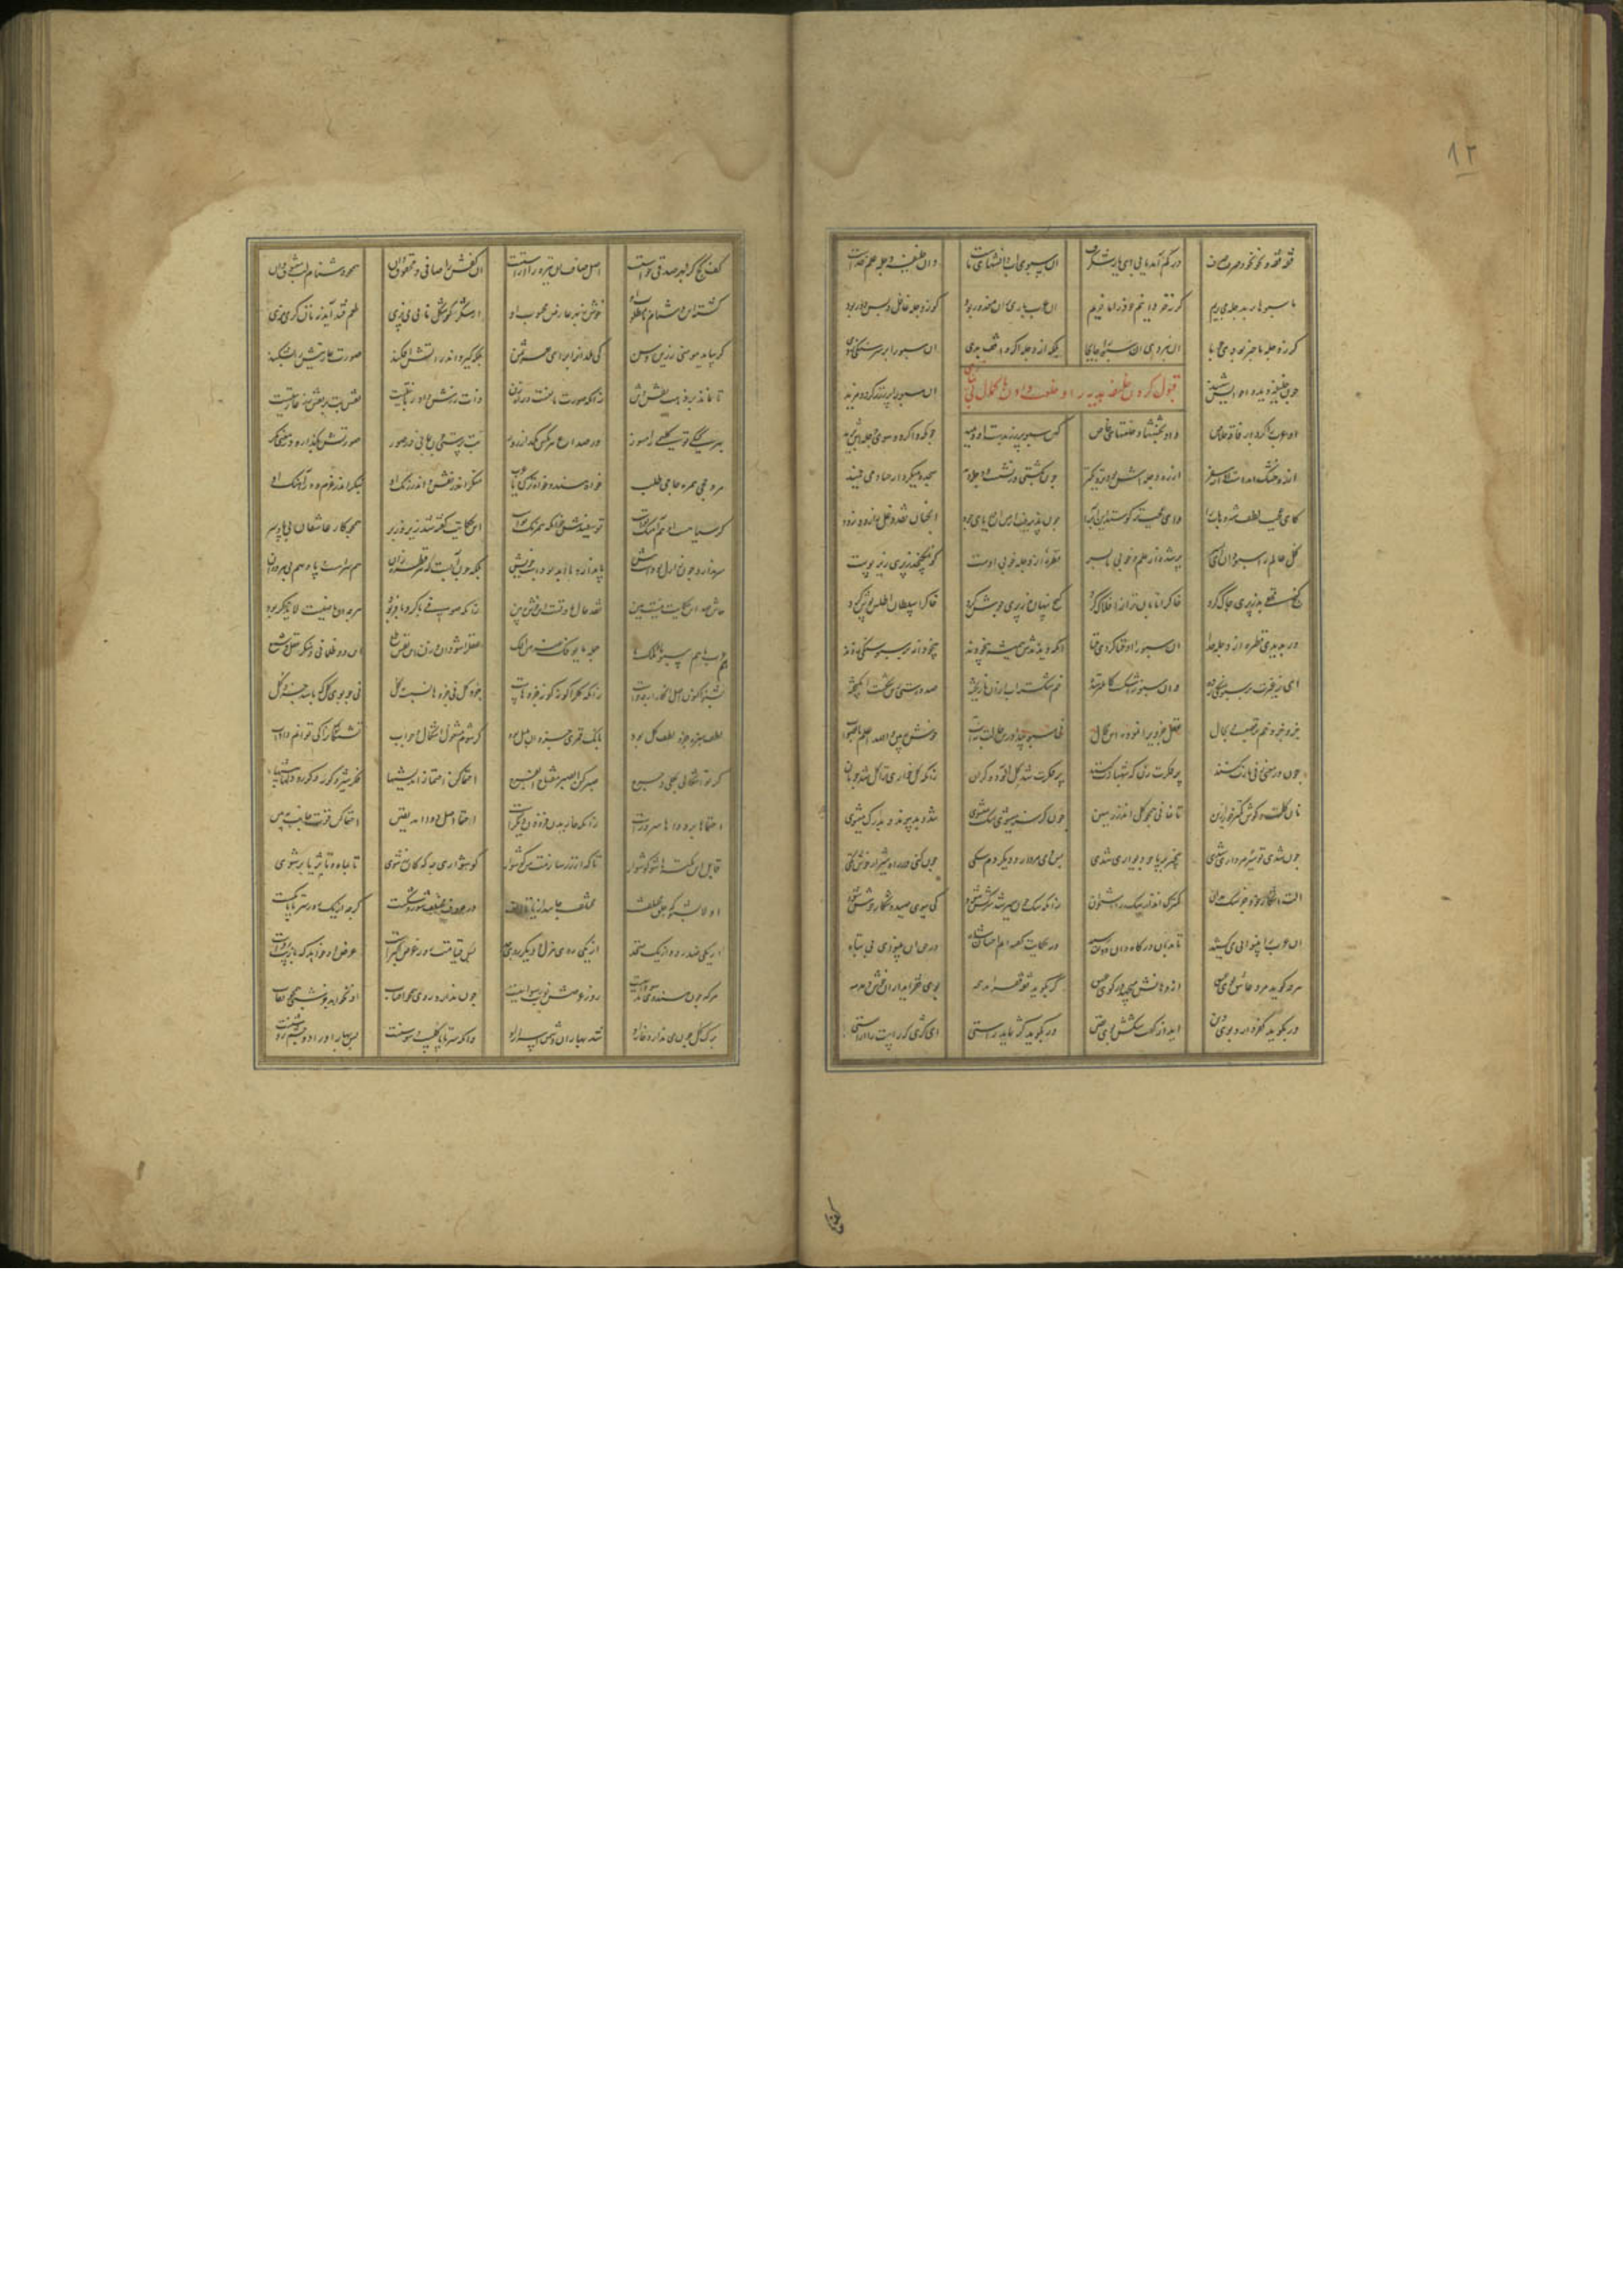 فقه فقه و نحو نحو و صرف صرف در کم آمد یابی ای یار شگرف آن سبوی آب دانشهای ماست وان خلیفه دجله علم خداست
ما سبوها پر بدجله می بریم گر نه خر دانیم خود را ما خریم آن عرب باری بدان معذور بود کو ز دجله غافل و بس دور بود
گر ز دجله با خبر بودی چو ما او نبردی آن سبو را جا بجا بلکه از دجله اگر واقف بدی آن سبو را بر سر سنگی زدی
قبول کردن خلیفه هدیه را و خلعت دادن با کمال بی نیازی
چون خلیفه دید و احوالش شنید آن سبو را پر ز زر کرد و مزید
آن عرب را کرد از فاقه خلاص داد بخششها و خلعتهای خاص کین سبو پر زر بدست او دهید چونکه واگردد سوی دجله ش برید
از ره خشک آمدست و از سفر از ره دجله ش بود نزدیکتر چون بکشتی در نشست و دجله دید سجده میکرد از حیا و می خمید
کای عجب لطف این شه وهاب را وان عجبتر کو ستد این آب را چون پذیرفت از من آن دریای جود انچنان نقد دغل را زود زود
کل عالم را سبو دان ای پسر پر شده از علم و خوبی تا بسر قطره از دجله خوبی اوست کو نمی گنجد ز پری زیر پوست
گنج مخفی بد ز پری چاک کرد خاک را تابان تر از افلاک کرد گنج پنهان بد ز پری جوش کرد خاک را سلطان اطلس پوش کرد
ور بدیدی قطره از دجله خدا آن سبو را او فنا کردی فنا آنکه دیدندش همیشه بیخودند بیخودانه بر سبو سنگی زدند
ای ز غیرت بر سبو سنگی زده وان سبو ز اشکست کاملتر شده خم شکسته آب ازو ناریخته صد درستی زین شکست انگیخته
جزو جزو خم برقصست و بحال عقل جزوی را نموده این محال نی سبو پیدا درین حالت نه آب خوش ببین والله اعلم بالصواب
چون در معنی زنی بازت کنند پر فکرت زن که شهبازت کنند پر فکرت شد گل آلوده گران زانکه گل خواری ترا گل شد چو نان
نان گلست و گوشت کمتر خور ازین تا نمانی همچو گل اندر زمین چون گرسنه میشوی سگ میشوی تند و بد پیوند و بدرگ میشوی
چون شدی تو سیر مرداری شدی بیخبر بی پا چو دیواری شدی پس دمی مردار و دیگر دم سگی چون کنی در راه شیران خوش تگی
آلت اشکار خود جز سگ مدان کمترک انداز سگ را استخوان زانکه سگ چون سیر شد سرکش شود کی سوی صید و شکار خوش شود
آن عرب را بینوایی می کشید تا بدان درگاه و آن دولت رسید در حکایت گفته ایم احسان شاه در حق آن بینوای بی پناه
هرچه گوید مرد عاشق بوی عشق از دهانش میجهد در کوی عشق گر بگوید فقه فقر آید همه بوی فقر آید از ان خوش دمدمه
ور بگوید کفر دارد بوی دین آید از گفت شکش بوی یقین ور بگوید کژ نماید راستی ای کژی که راست را آراستی
کف کژ کز بحر صدقی خاستست اصل صاف آن تیره را آراستست آن کفش را صافی و محقوق دان همچو دشنام لب معشوق دان
گشته آن دشنام نامطلوب او خوش ز بهر عارض محبوب او از شکر گر شکل نانی می پزی طعم قند آید نه نان گر می مزی
گر بیابد مومنی زرین وثن کی هلد آنرا برای هر شمن بلکه گیرد اندر آتش افکند صورت عاریتش را بشکند
تا نماند بر ذهب نقش وثن زانکه صورت مانعست و راهزن ذات زرش داد ربانیتست نقش بت بر نقد زر عاریتست
بهر کیکی تو گلیمی را مسوز وز صداع هر مگس مگذار روز بت پرستی چون بمانی در صور صورتش بگذار و در معنی نگر
مرد حجی همره حاجی طلب خواه هندو خواه ترک یا عرب منگر اندر نقش و اندر رنگ او بنگر اندر عزم و در آهنگ او
گر سیاهست او هم آهنگ توست تو سفیدش خوان که همرنگ توست این حکایت گفته شد زیر و زبر همچو کار عاشقان بی پا و سر
سر ندارد چون ز ازل بودست پیش پا ندارد با ابد بودست خویش بلکه چون آبست هر قطره ازان هم سرست و پا و هم بی هر دوان
حاش لله این حکایت نیست هین نقد حال ما و تست این خوش ببین زانکه صوفی با کر و با فر بود هرچه آن ماضیست لا یذکر بود
هم عرب ما هم سبو ما هم ملک جمله ما یوفک عنه من افک عقل را شو دان و زن این نفس و طمع این دو ظلمانی و منکر عقل شمع
بشنو اکنون اصل انکار از چه خاست زانکه کل را گونه گونه جزوهاست جزو کل نی جزوها نسبت بکل نی چو بوی گل که باشد جزو گل
لطف سبزه جزو لطف گل بود بانگ قمری جزو آن بلبل بود گر شوم مشغول اشکال و جواب تشنگانرا کی توانم داد آب
گر تو اشکالی بکلی و حرج صبر کن الصبر مفتاح الفرج احتما کن احتما ز اندیشها فکر شیر و گور و دلها بیشها
احتماها بر دواها سرورست زانکه خاریدن فزونی گرست احتما اصل دوا آمد یقین احتما کن قوت جانت ببین
قابل این گفتها شو گوش وار تا که از زر سازمت من گوشوار گوشواری چه که کان زر شوی تا بماه و تا ثریا بر شوی
اولا بشنو که خلق مختلف مختلف جانند از یا تا الف در حروف مختلف شور و شکیست گرچه از یک رو ز سر تا پا یکیست
از یکی رو ضد و از یک متحد از یکی رو هزل و از دیگر جد پس قیامت روز عرض اکبرست عرض او خواهد که با زیب و فرست
هرکه چون هندوی سوداییست روز عرضش نوبت رسواییست چون ندارد روی همچو آفتاب او نخواهد جز شبی همچون نقاب
برگ گل چون ندارد خار او شد بهاران دشمن اسرار او وانکه سر تا پا گلست و سوسنست پس بهار او را دو چشم روشنست